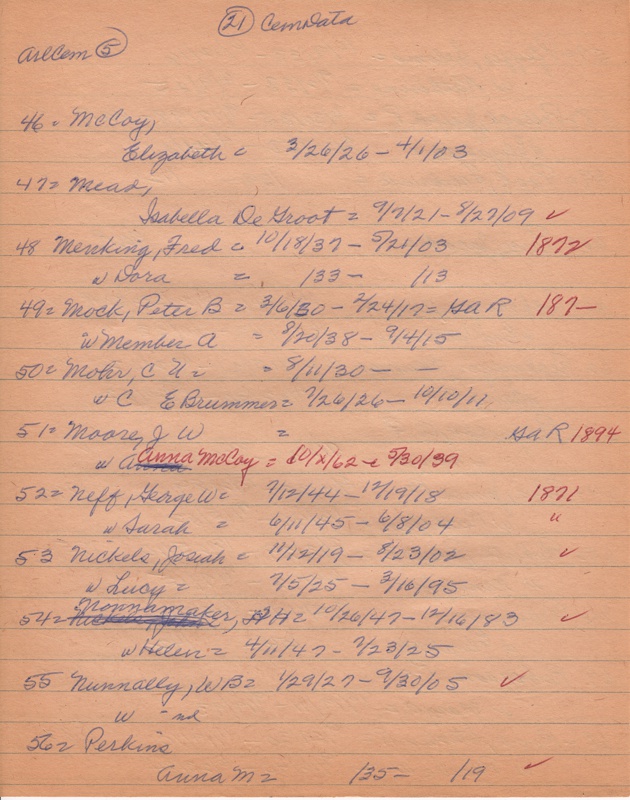 (21) CemData
ArlCem (5)
46 = McCoy,
Elizabeth = 3/26/26 - 4/1/03
47 = Mead,
Isabella De Groot = 9/7/21 - 8/27/09 ✓
48 Menking, Fred = 10/18/37 - 5/21/03 1872
w Dora = /33 - /13
49 = Mock, Peter B = 3/6/30 - 2/24/17 = GaR 187-
w Member A = 8/20/38 - 9/4/15
50 = Mohr, C U = = 8/11/30 - -
w C E Brummer = 7/26/26 - 10/10/11
51 = Moore, J W = GaR 1894
w Anna McCoy = 10/x/62 - 5/30/39
52 = Neff, George W = 7/12/44 - 12/19/18 1871
w Sarah = 6/11/45 - 6/8/04 "
53 Nickels, Josiah = 11/12/19 - 8/23/02 ✓
w Lucy = 7/5/25 - 3/16/95
54 = Nonnamaker, H = 10/26/47 - 12/16/83 ✓
w Helen = 4/11/47 - 7/23/25
55 Nunnally, W B = 1/29/27 - 9/30/05 ✓
w - nd
56 = Perkins
Anna M = /35 - /19 ✓